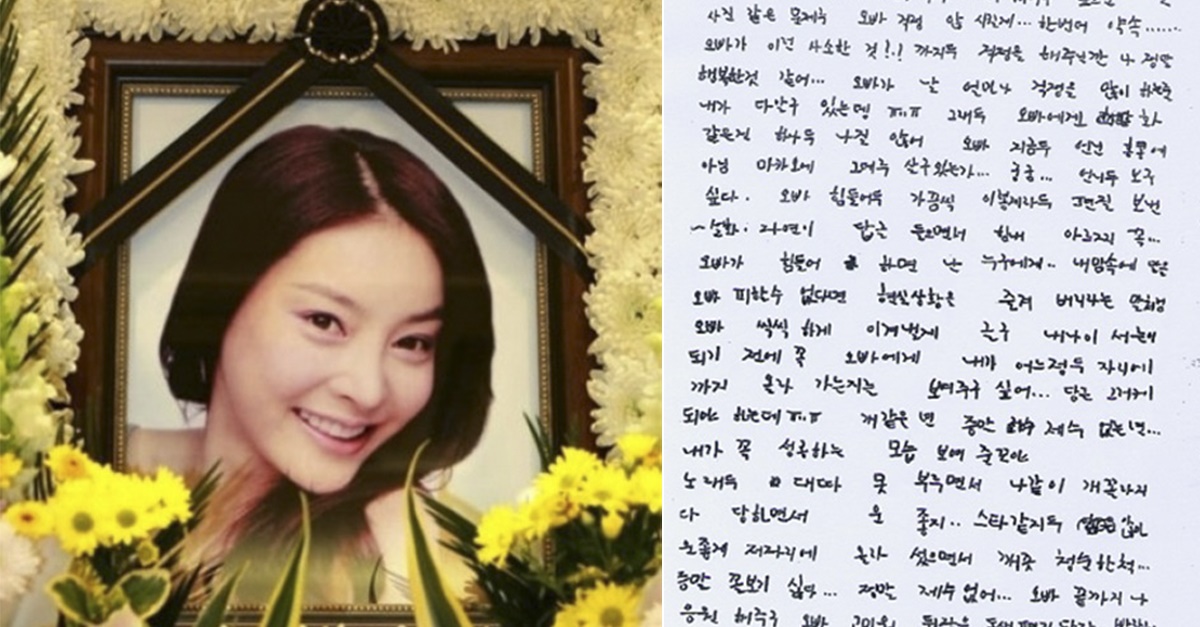 사진 같은 문제루 오빠 걱정 안 시킬게... 한번더 약속......
오빠가 이런 사소한 것!.! 까지두 걱정을 해주니깐 나 정말
행복한것 같어... 오빠가 날 언마나 걱정을 많이 하는줄
내가 다안구 있는데 ㅠ.ㅠ 그래두 오빠에게 화
같은건 하나두 나질 않어 오빠 지금두 언년 홍콩에
아님 마카오에 그대루 산구있는가... 궁금... 언니두 보구
싶다. 오빠 힘들어두 가끔씩 이렇게라두 편질 보번
~설화. 자연이 답근 들으면서 힘내 아르지 꼭...
오빠가 힘들어 하면 난 누구에게.. 내맘속에 만은
오빠 피한수 없다면 현실상황은 즐겨 버리라는 말처럼
오빠 씩씩하게 이겨낼제 근구 내나이 서른이
되기 전에 꼭 오빠에게 내가 어느정두 자리에
까지 올라 가는지는 보여주구 싶어... 당근 그러게
되야 하는데 ㅠ.ㅠ 개같은 년 증만 제수 없는년...
내가 꼭 성공하는 모습 보여 줄꼬야
노래두 대따 못 부루면서 나같이 개꼴라지
다 당하면서 운 좋지.. 스타같지두 않년
운좋게 저자리에 올라 섰으면서 깨끗 청수한척...
증만 꼰보기 싫다... 정만 제수없어... 오빠 끝까지 나
응원 해주구 오빠